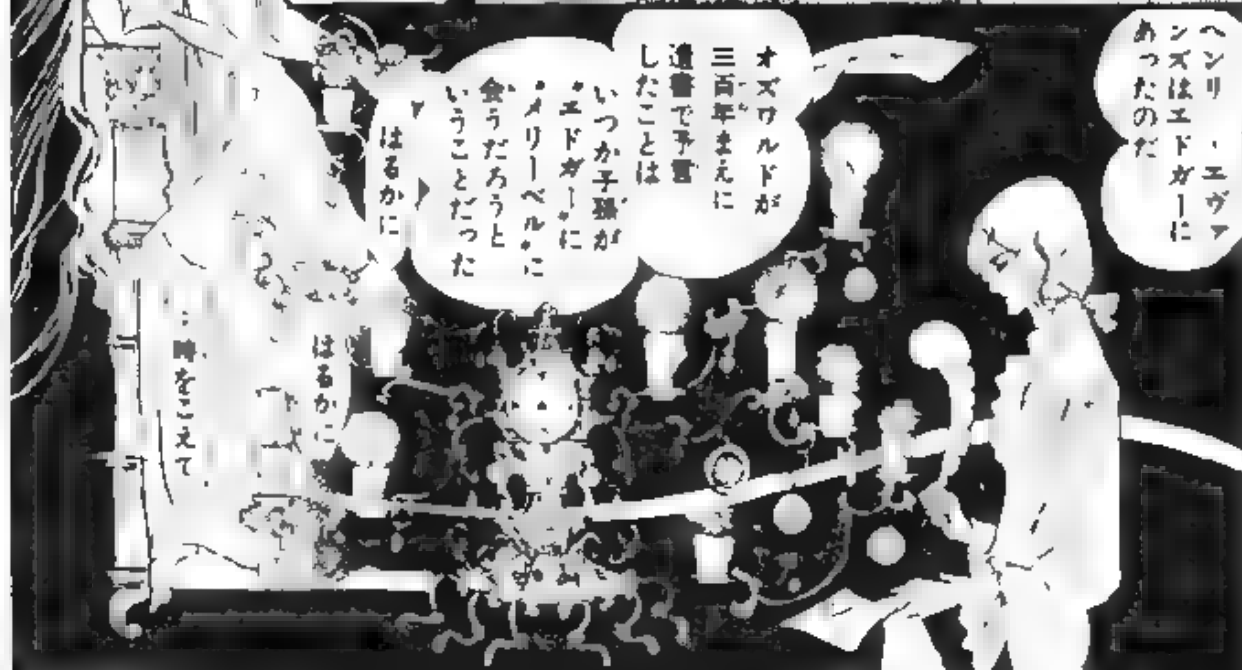 ヘンリ・エヴァ
ンズはエドガーに
あったのだ
オズワルドが
三百年まえに
遺書で予言
したことは
いつか子孫が
“エドガー”に
“メリーベル”に
会うだろうと
いうことだった
はるかに
はるかに
：時をこえて